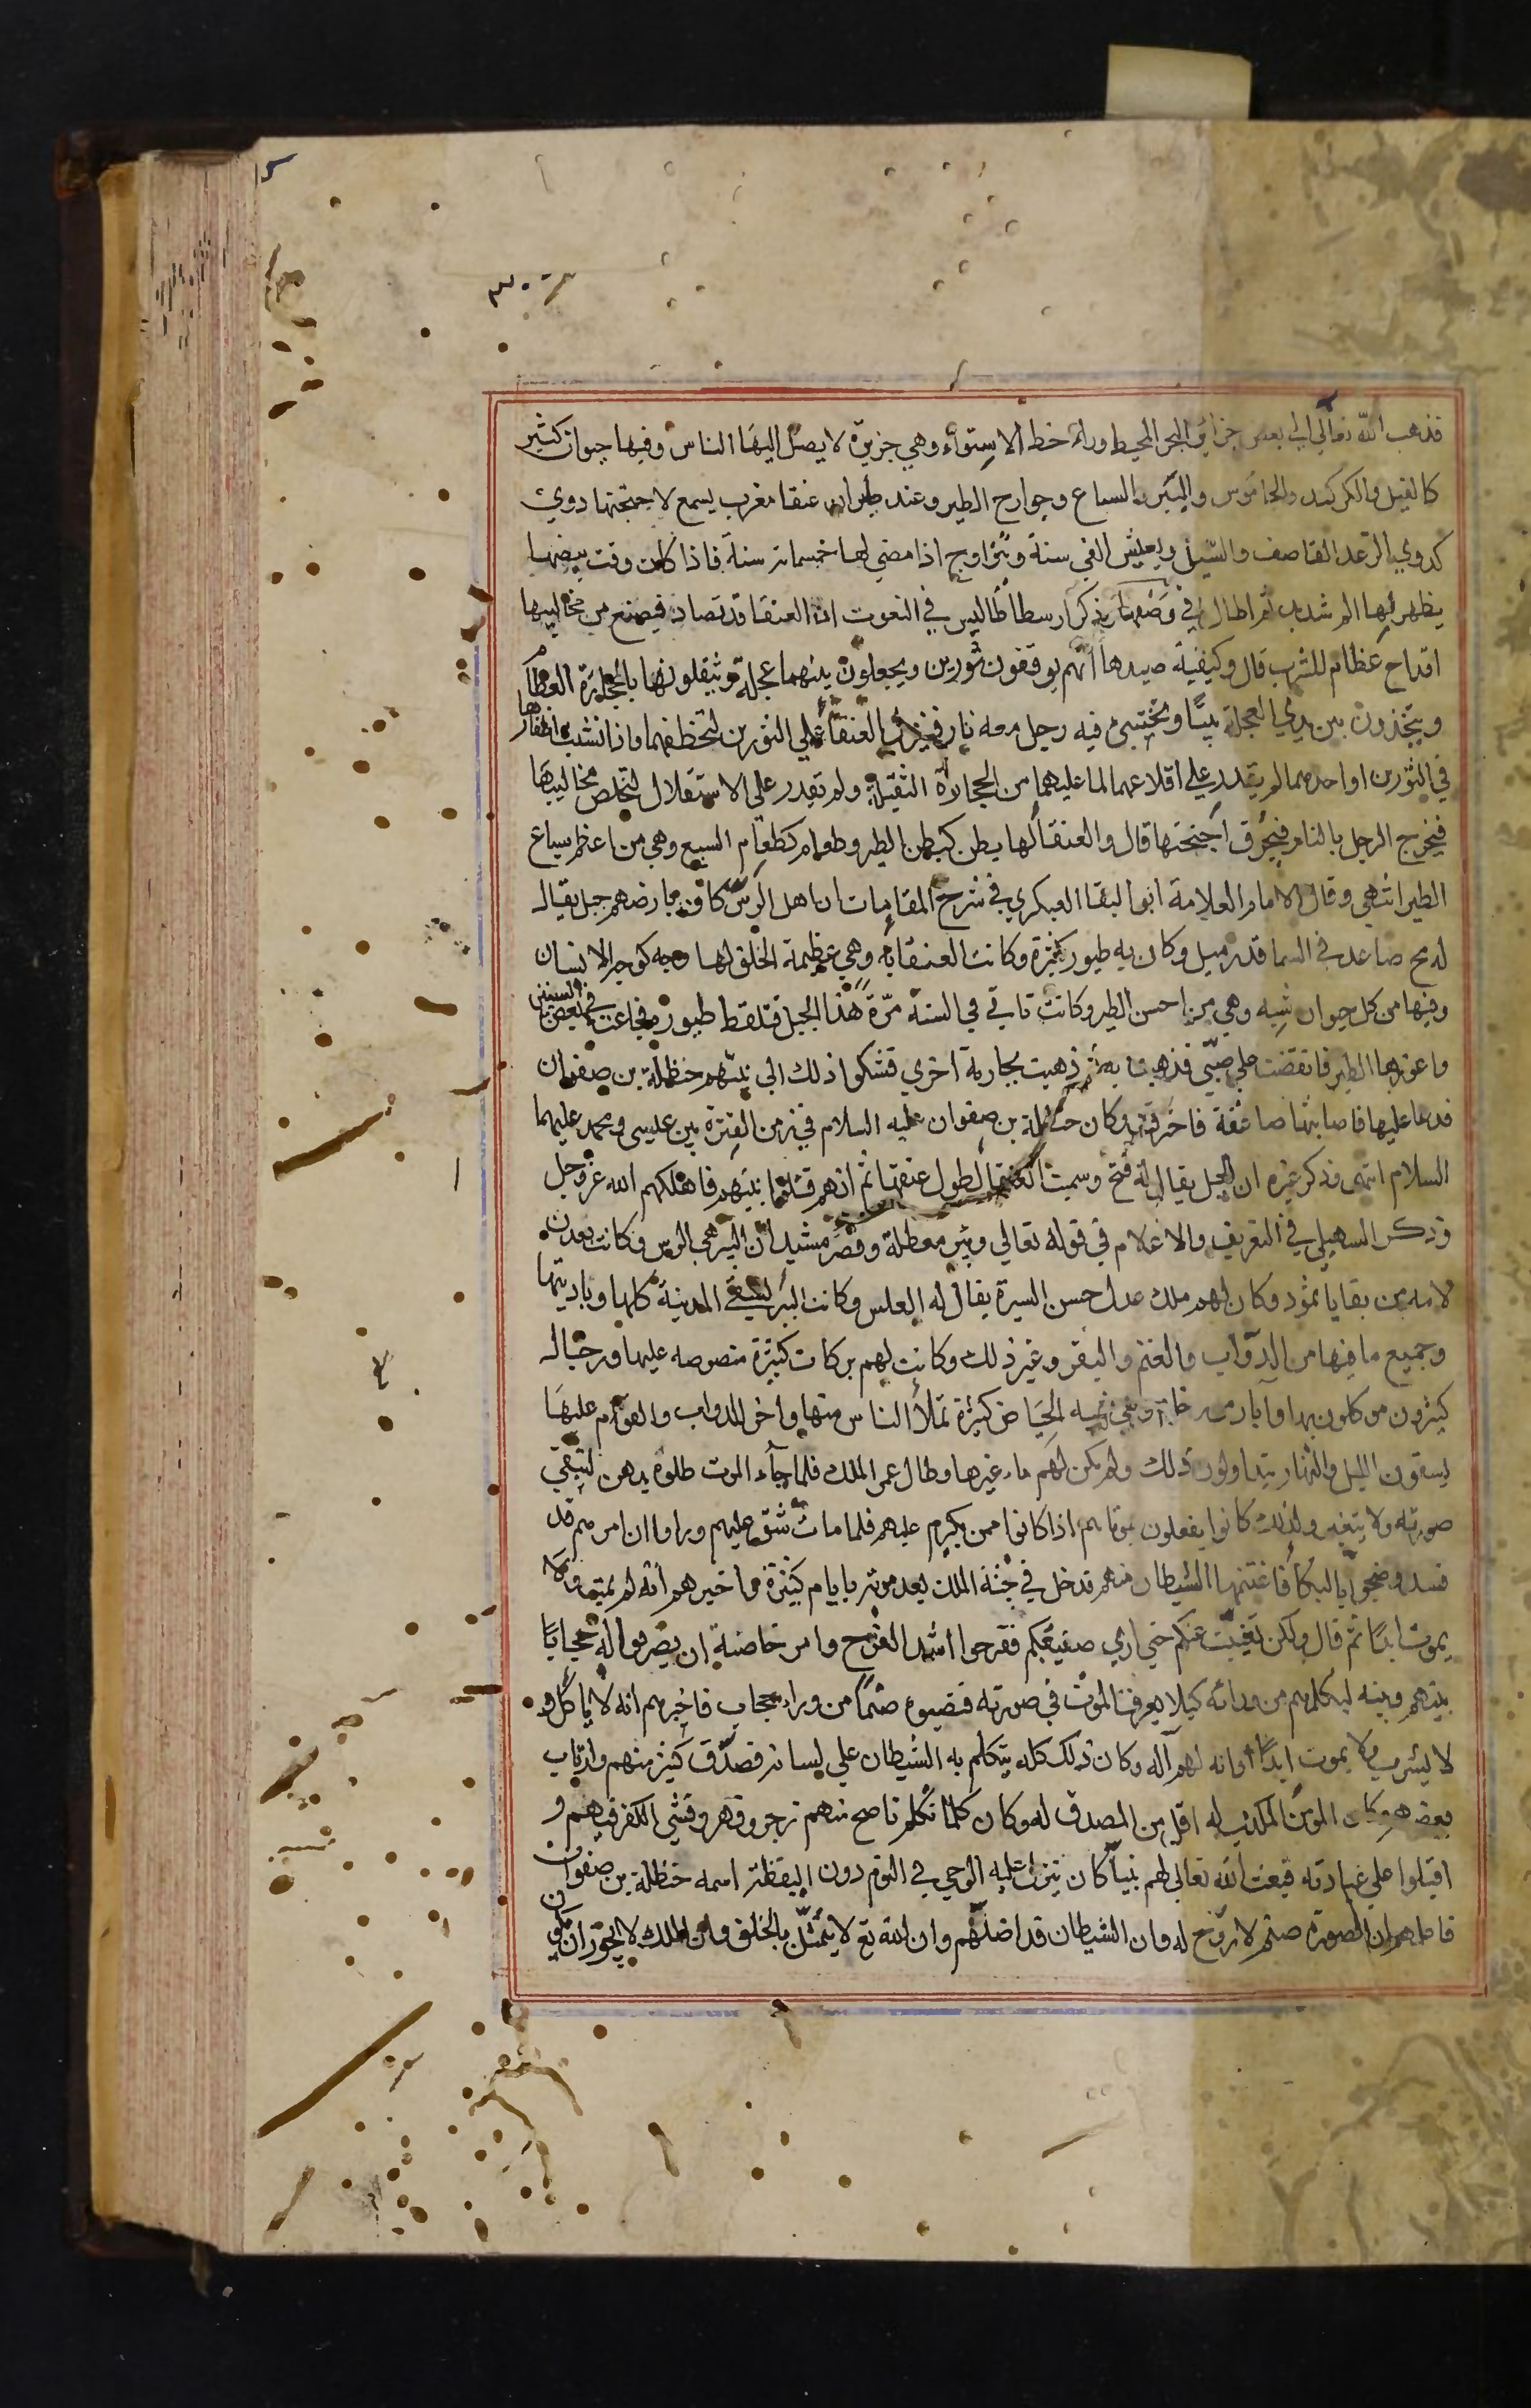 ٣٠٠
فذهب الله تعالى الي بعض جزائر البحر المحيط وراء خط الاستواء وهي جزيرة لا يصل اليها الناس وفيها حيوان كثير
كالفيل والكركند والجاموس والببر والسباع وجوارح الطير وعند طيران عنقا مغرب يسمع لاجنحتها دوي
كدوي الرعد القاصف والسيل ويعيش الفي سنة ويتزاوج اذا مضي لها خمسماية سنة فاذا كان وقت بيضها
يظهر بها الم شديد ثم اطال في وصفها وذكر ارسطاطاليس في النعوت ان العنقا قد تصاد فيصنع من مخاليبها
اقداح عظام للشرب قال وكيفية صيدها انهم يوقفون ثورين ويجعلون بينهما عجلة ويثقلونها بالحجارة العظام
ويتخذون بين يدي العجلة بيتا ويختبئ فيه رجل معه نار فينزل العنقا علي الثورين لتخطفهما فاذا نشبت اظفارها
في الثورين او احدهما لم يقدر علي اقلاعهما لما عليهما من الحجارة الثقيلة ولم تقدر على الاستقلال لتخلص مخاليبها
فيخرج الرجل بالنار فيحرق اجنحتها قال والعنقا لها بطن كبطن الطير وعظام كعظام السبع وهي من اعظم سباع
الطير انتهي وقال الامام العلامة ابو البقا العبكري في شرح المقامات ان اهل الرس كان بارضهم جبل يقال
له مح صاعد في السما قدر ميل وكان به طيور كثيرة وكانت العنقا به وهي عظيمة الخلق لها وجه كوجه الانسان
وفيها من كل حيوان شبه وهي من احسن الطير وكانت تاتي في السنة مرة هذا الجبل فتلتقط طيوره فجاعت في بعض السنين
واعوزها الطير فانقضت على صبي فذهبت به ثم ذهبت بجارية اخري فشكوا ذلك الي نبيهم حنظلة بن صفوان
فدعا عليها فاصابتها صاعقة فاحترقت وكان حنظلة بن صفوان عليه السلام في زمن الفترة بين عيسى ومحمد عليهما
السلام انتهى وذكر غيره ان الجبل يقال له فتح وسميت العنقا لطول عنقها ثم انهم قتلوا نبيهم فاهلكهم الله عز وجل
وذكر السهيلي في التعريف والاعلام في قوله تعالي وبير معطلة وقصر مشيد ان البير هي الرس وكانت بعدن
لامة من بقايا ثمود وكان لهم ملك عدل حسن السيرة يقال له العلس وكانت البير تسقي المدينة كلها وباديتها
وجميع ما فيها من الدواب والغنم والبقر وغير ذلك وكانت لهم بركات كثيرة منصوصه عليها ورجال
كثيرون موكلون بها وآبار من رخام الحياض كثيرة تملأ الناس منها واخر للدواب والقوام عليها
يسقون الليل والنهار يتداولون ذلك ولم يكن لهم ماء غيرها وطال عمر الملك فلما جآء الموت طلوه بدهن لتبقي
صورته ولا يتغير وكذلك كانوا يفعلون بموتاهم اذا كانوا ممن يكرم عليهم فلما مات شق عليهم وراوا ان امرهم قد
فسد وضجوا بالبكا فاغتنمها الشيطان منهم فدخل في جثة الملك بعد موته بايام كثيرة فاخبرهم انه لم يمت ولا
يموت ابدا ثم قال ولكن تغيبت عنكم حتي اري صنيعكم ففرحوا اشد الفرح وامر خاصته ان يضربوا له حجابا
بينهم وبينه ليكلمهم من ورائه كيلا يعرف الموت في صورته فنصبوه صنما من وراء حجاب فاخبرهم انه لا ياكل و
لا يشرب ولا يموت ابدا وانه لهم آله وكان ذلك كله يتكلم به الشيطان علي لسانه فصدق كثير منهم وارتاب
بعضهم وكان المومن المكذب له اقل من المصدق له وكان كلما تكلم ناصح منهم زجر وقهر وفشي الكفر فيهم و
اقبلوا علي عبادته فبعث الله تعالى لهم نبيا كان ينزل عليه الوحي في النوم دون اليقظة اسمه حنظلة بن صفوان
فاعلمهم ان الصورة صنم لا روح له وان الشيطان قد اضلهم وان الله تع لا يتمثل بالخلق وان الملك لا يجوز ان يكون